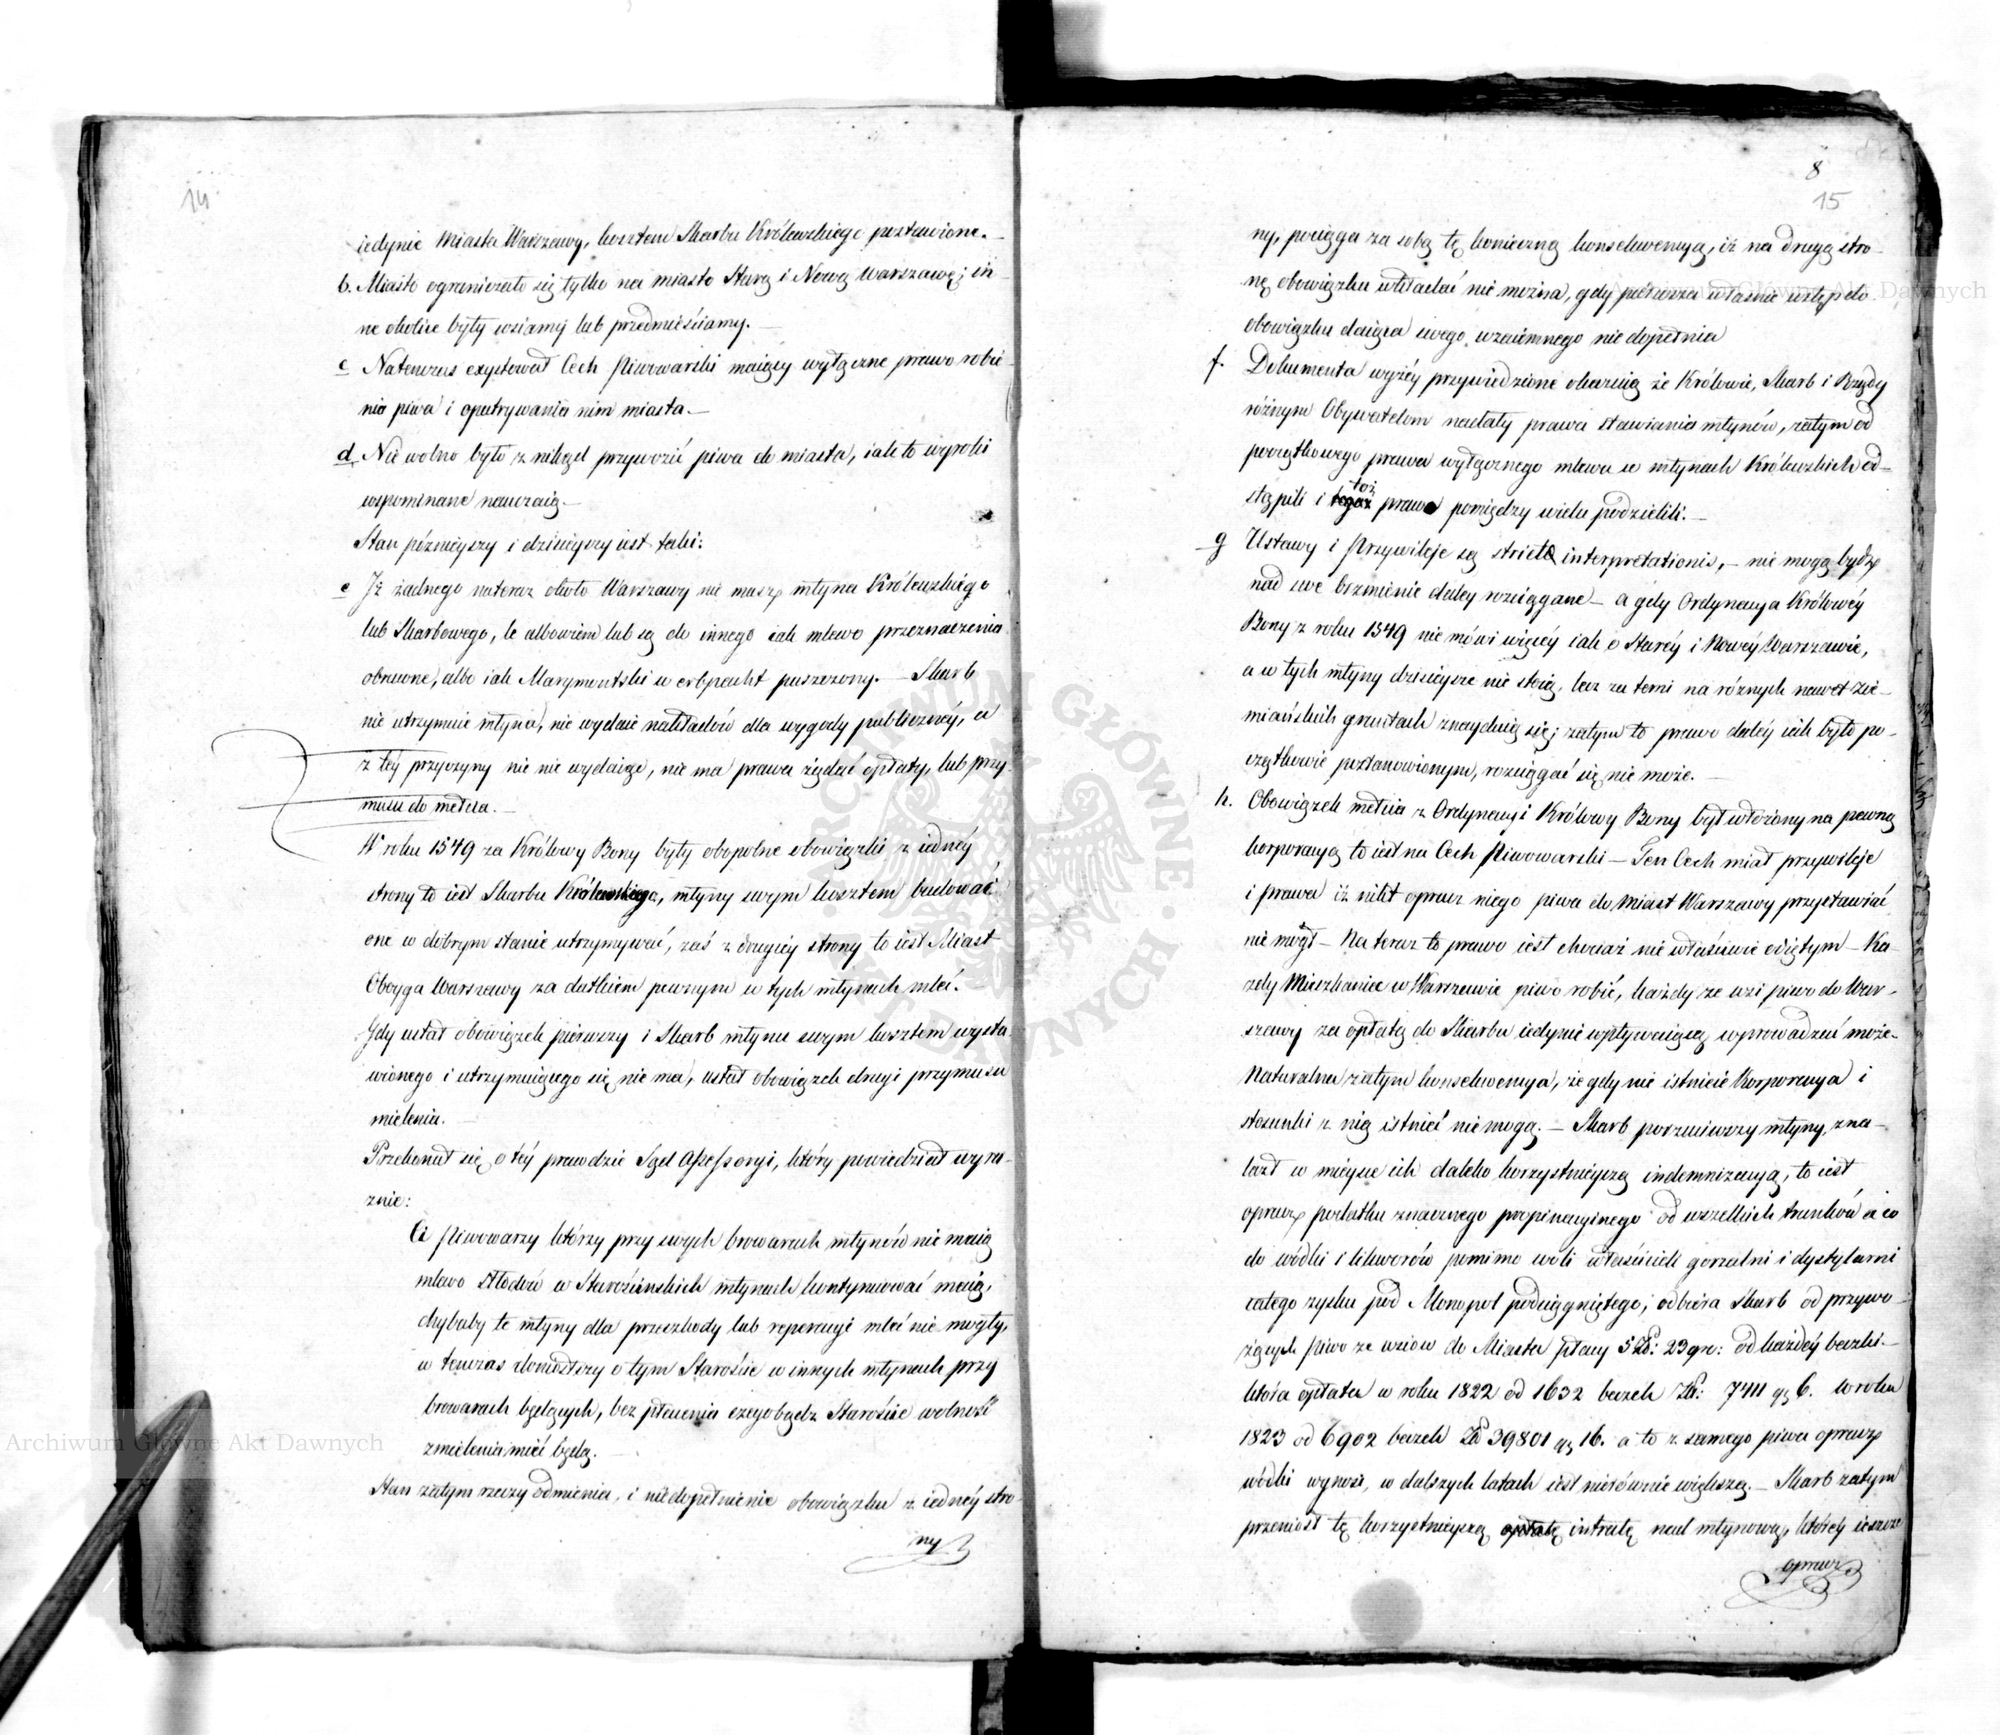 14
iedynie Miasta Warszawy, kosztem Skarbu Królewskiego postawione.—
b. Miasto ograniczało się tylko na miasto Starą i Nową Warszawę; in-
ne okolice były wsiamy lub przedmieściamy.—
c Natenczas exystował Cech Piwowarski maiący wyłączne prawo robie-
nia piwa i opatrywania nim miasta.—
d Nie wolno było z nikąd przywozić piwa do miasta, iak to wyroki
wspominane nauczaią.—
Stan późnieyszy i dzisieyszy iest taki:
e Iż żadnego na teraz około Warszawy nie masz młyna Królewskiego
lub Skarbowego, te albowiem lub są do innego iak mlewo przeznaczenia
obrucone, albo iak Marymontski w erbpacht puszczony.— Skarb
nie utrzymuie młyna, nie wydaie nakładów dla wygody publiczney, a
z tey przyczyny nic nie wydaiąc, nie ma prawa żądać opłaty, lub przy-
musu do melcia.—
W roku 1549 za Królowy Bony były obopolne obowiązki z iedney
strony to iest Skarbu Królewskiego, młyny swym kosztem budować
one w dobrym stanie utrzymywać, zaś z drugiey strony to iest Miast
Oboyga Warszawy za datkiem pewnym w tych młynach mleć.—
Gdy ustał obowiązek pierwszy i Skarb młynu swym kosztem wysta-
wionego i utrzymuiącego się nie ma, ustał obowiązek drugi przymusu
mielenia.—
Przekonał się o tey prawdzie Sąd Assessoryi, który powiedział wyra-
znie:
Ci Piwowarzy którzy przy swych browarach młynów nie maią
mlewo słodów w Starościnskich młynach kontynuować maią,
chybaby te młyny dla przeszkody lub reperacyi mleć nie mogły,
w tenczas doniosłszy o tym Starości w innych młynach przy
browarach będących, bez płacenia czegobądz Starości wolność
zmielenia mieć będą.—
Stan zatym rzeczy odmienia, i niedopełnienie obowiązku z iedney stro-
ny
8
15
ny, pociąga za sobą tę konieczną konsekwencyą, iż na drugą stro-
nę obowiązku wkładać nie można, gdy pierwsza własnie względo
obowiązku daiąca swego wzaiemnego nie dopełnia
f. Dokumenta wyżey przywiedzione okazuią że Królowie, Skarb i Rządy
różnym Obywatelom nadały prawa stawiania młynów, zatym od
początkowego prawa wyłącznego mlewa w młynach Królewskich od-
stąpili i toż prawo pomiędzy wielu podzielili.—
g Ustawy i Przywileje są strictæ interpretationis,— nie mogą bydź
nad swe brzmienie daley rozciągane— a gdy Ordynacya Królowéy
Bony z roku 1549 nie mówi więcéy iak o Staréy i Nowéy Warszawie,
a w tych młyny dzisieysze nie stoią, lecz za temi na różnych nawet Zie-
miańskich gruntach znayduią się; zatym to prawo daléy iak było po-
czątkowie postanowionym, rozciągać się nie może.—
h. Obowiązek melcia z Ordynacyi Królowy Bony był włożony na pewną
korporacyą to iest na Cech Piwowarski— Ten Cech miał przywileje
i prawa iż nikt oprucz niego piwa do Miast Warszawy przystawiać
nie mógł— Na teraz to prawo iest chociaż nie właściwie odiętym— Ka-
żdy Mieszkaniec w Warszawie piwo robić, każdy ze wsi piwo do War-
szawy za opłatą do Skarbu iedynie wpływaiącą wprowadzać może.—
Naturalna zatym konsekwencya, że gdy nie istnieie Korporacya i
stosunki z nią istnieć nie mogą.— Skarb porzuciwszy młyny, zna-
lazł w mieysce ich daleko korzystnieyszą indemnizacyą, to iest
oprucz podatku znacznego propinacyinego od wszelkich trunków a co
do wódki i likworów pomimo woli właścicieli gorzelni i dystylarni
całego zysku pod Monopol podciągniętego; odbiera Skarb od przywo-
żących Piwo ze wsiow do Miasta płacy 5 Zł: 23 gr: od każdey beczki.—
która opłata w roku 1822 od 1632 beczek Zł: 7411 gr 6. w roku
1823 od 6902 beczek Zł 39801 gr 16. a to z samego piwa oprucz
wódki wynosi, w dalszych latach iest nierównie większą.— Skarb zatym
przeniósł tę korzystnieyszą intratę nad młynową, którey ieszcze
oprucz
Archiwum Główne Akt Dawnych
Archiwum Główne Akt Dawnych
ARCHIWUM GŁÓWNE AKT DAWNYCH